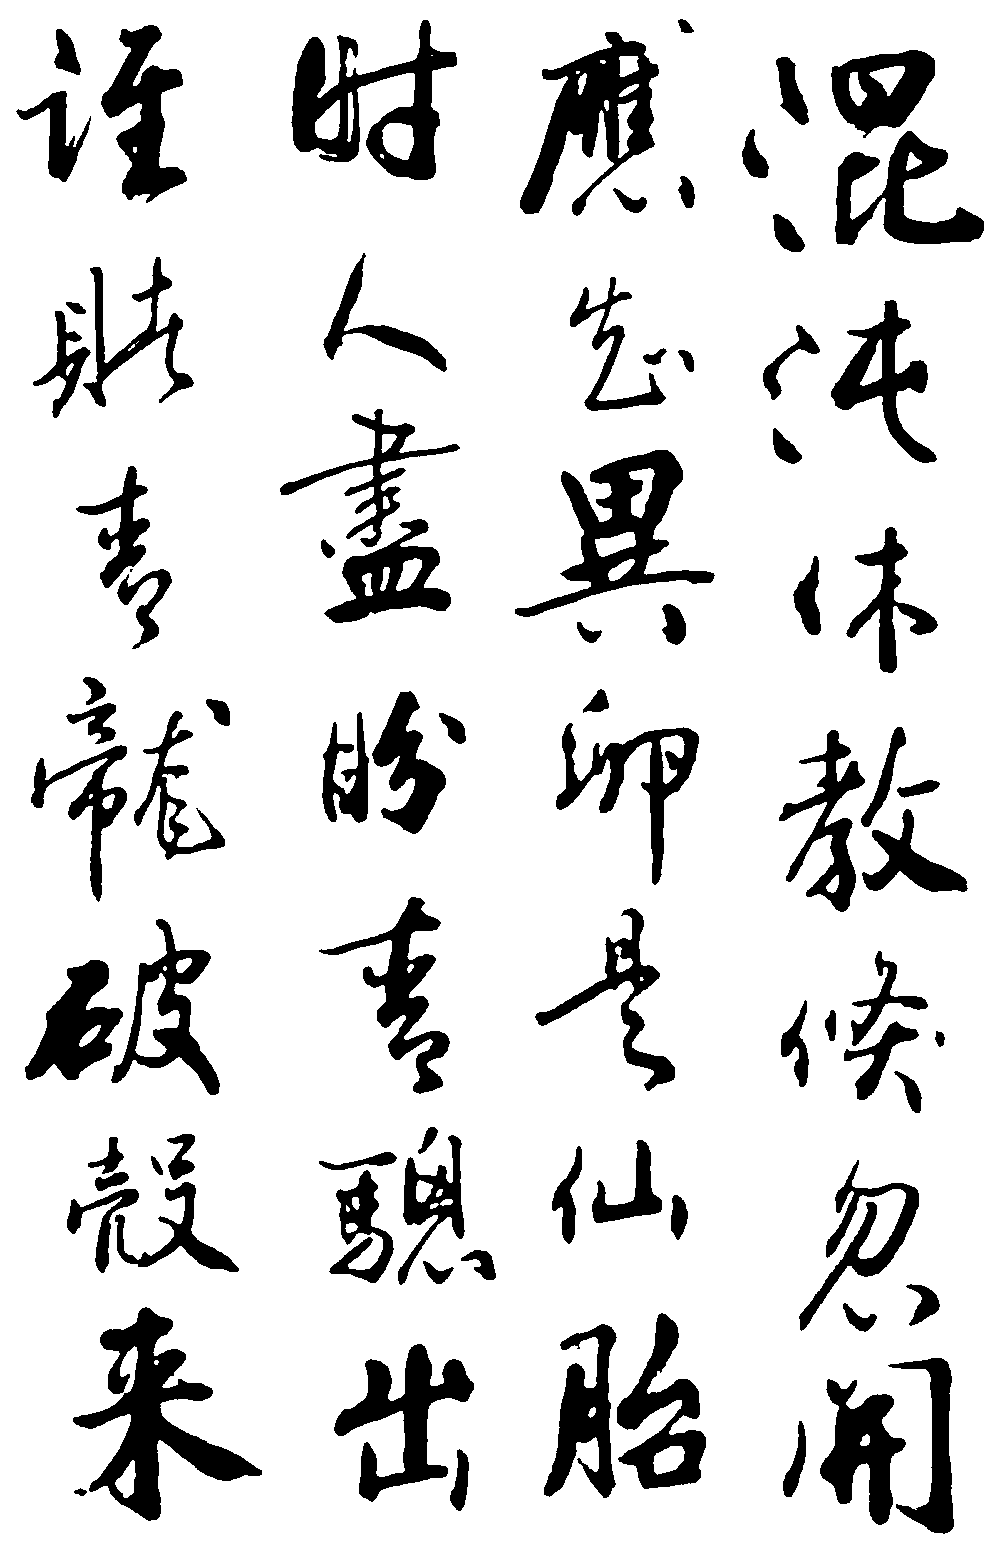 混沌休教倏忽開
應知異卵是仙胎
時人盡盼青驄出
誰睹青龍破殼來